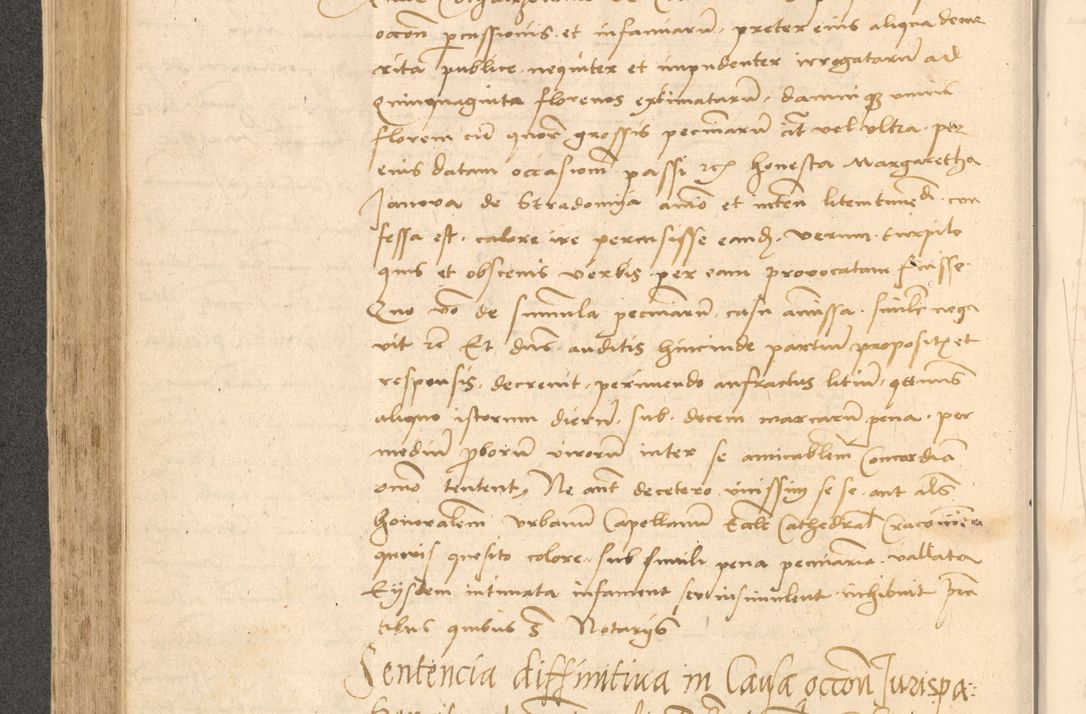 occōn percussionis et infamiarū preter eius aliqua deme
rita publice nequiter et impudenter irrogatarū ad
quinquaginta florenos extimatarū damni qz unius
floreni cū grossis pecuniarū vel ultra per
eius datam occasionē passi honesta Margaretha
Janova de Stradomija animo et litem con
fessa est calore ire percusisse eandē verum turpilo
quis et obscenis verbis per eam provocatam fuisse
Quo vō de summula pecuniarū casu amissa simile nega
vit Et dns auditis hincinde partiū propositis et
responsis decrevit perimendo anfractus litiū
aliquo istorum dierū sub decem marcarū pena per
mediū proborū virorū inter se amicabilem Concordiā
omō tentent Ne ant decetero vicissim se se aut als
honorabilem Urbanū Capellanū Eccle Cathedral Cracovien
quovis quesito colore sub simili pena pecuniaria vallata
Eijsdem intimata infament seu insimulent inhibuit pnti
bus quibus 3 Notarijs
Sentencia diffinitiva in Causa occōn Jurispa: